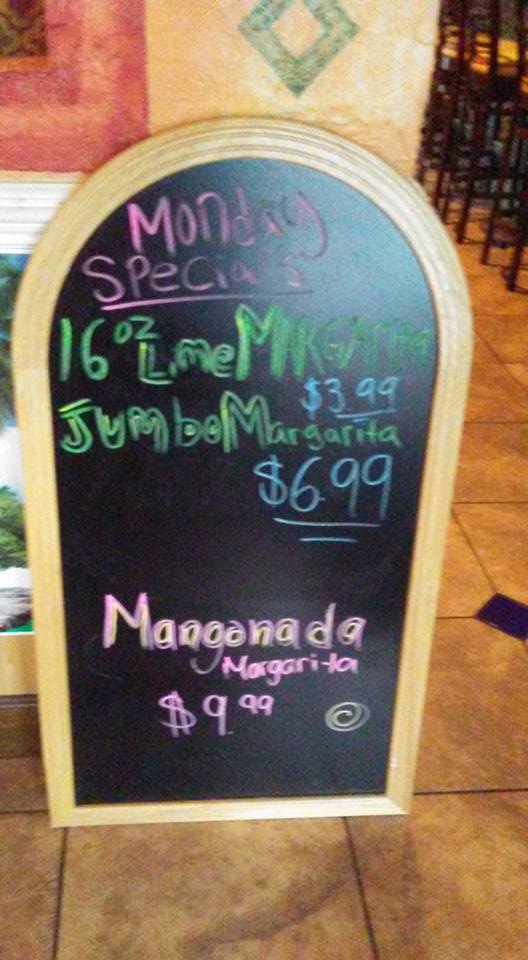 Monday
Specials
16 oz Lime MARGARITA
$3.99
Jumbo Margarita
$6.99
Mangonada
Margarita
$9.99